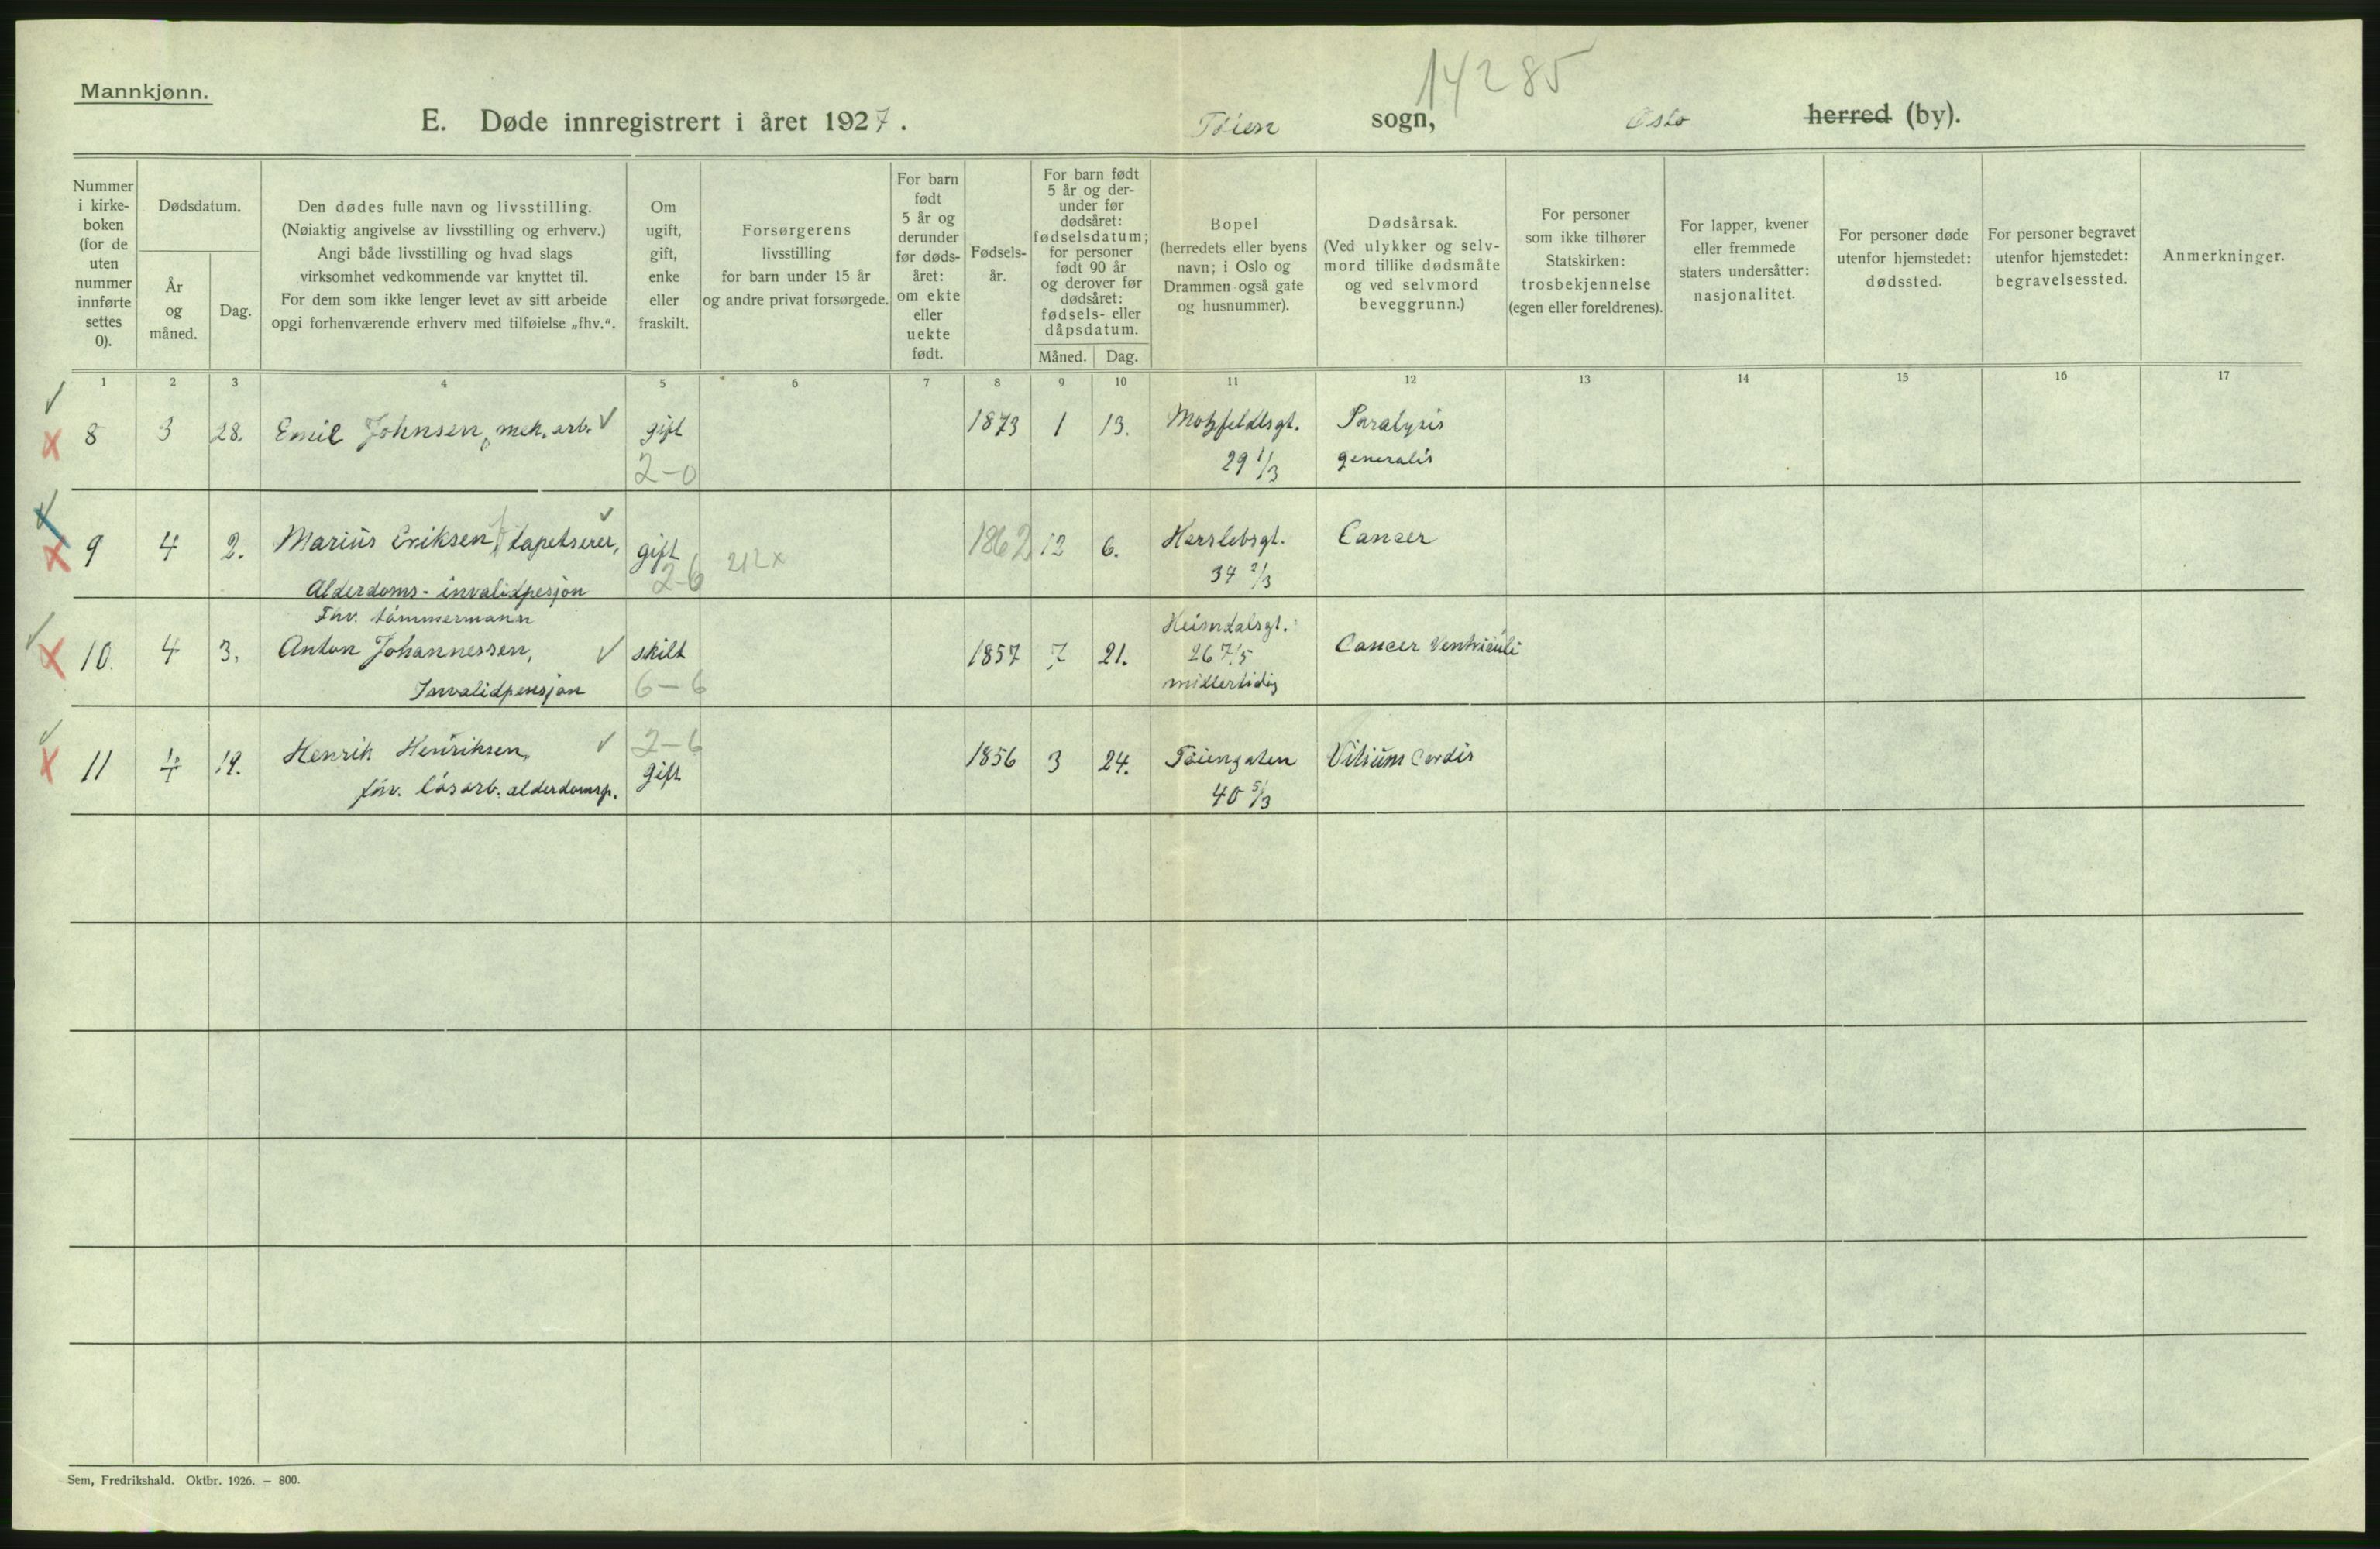 14285
Mannkjønn.
E. Døde innregistrert i året 1927. Tøien sogn, Oslo herred (by).
Nummer
i kirke-
boken
(for de
uten
nummer
innførte
settes
0).
Dødsdatum.
År
og
måned.
Dag.
Den dødes fulle navn og livsstilling.
(Nøiaktig angivelse av livsstilling og erhverv.)
Angi både livsstilling og hvad slags
virksomhet vedkommende var knyttet til.
For dem som ikke lenger levet av sitt arbeide
opgi forhenværende erhverv med tilføielse „fhv.“.
Om
ugift,
gift,
enke
eller
fraskilt.
Forsørgerens
livsstilling
for barn under 15 år
og andre privat forsørgede.
For barn
født
5 år og
derunder
før døds-
året:
om ekte
eller
uekte
født.
Fødsels-
år.
For barn født
5 år og der-
under før
dødsåret:
fødselsdatum;
for personer
født 90 år
og derover før
dødsåret:
fødsels- eller
dåpsdatum.
Måned. Dag.
Bopel
(herredets eller byens
navn; i Oslo og
Drammen også gate
og husnummer).
Dødsårsak.
(Ved ulykker og selv-
mord tillike dødsmåte
og ved selvmord
beveggrunn.)
For personer
som ikke tilhører
Statskirken:
trosbekjennelse
(egen eller foreldrenes).
For lapper, kvener
eller fremmede
staters undersåtter:
nasjonalitet.
For personer døde
utenfor hjemstedet:
dødssted.
For personer begravet
utenfor hjemstedet:
begravelsessted.
Anmerkninger.
1 2 3 4 5 6 7 8 9 10 11 12 13 14 15 16 17
8 3 28. Emil Johnsen, mek. arb. gift 1873 1 13. Motzfeldtsgt. Paralysis
2-0 29 1/3 generalis
9 4 2. Marius Eriksen, tapetserer, gift 212x 1862 12 6. Herslebsgt. Cancer
Alderdoms- invalidpesjon 2-6 34 2/3
Fhv. tømmermann Heimdalsgt.
10. 4 3. Anton Johannessen, skilt 1857 7 21. 26 7/5 Cancer Ventriculi
Invalidpensjon 6-6 midlertidig
11 4 19. Henrik Henriksen, 2-6 1856 3 24. Tøiengaten Vitium Cordis
fhv. løsarb. alderdomsp. gift 40 5/3
Sem, Fredrikshald. Oktbr. 1926. — 800.